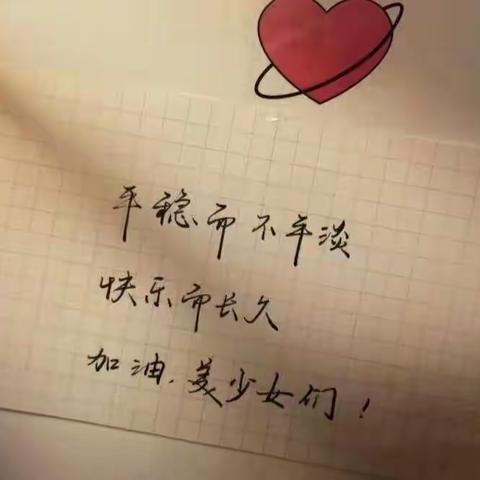 平稳而不平淡
快乐而长久
加油.美少女们!